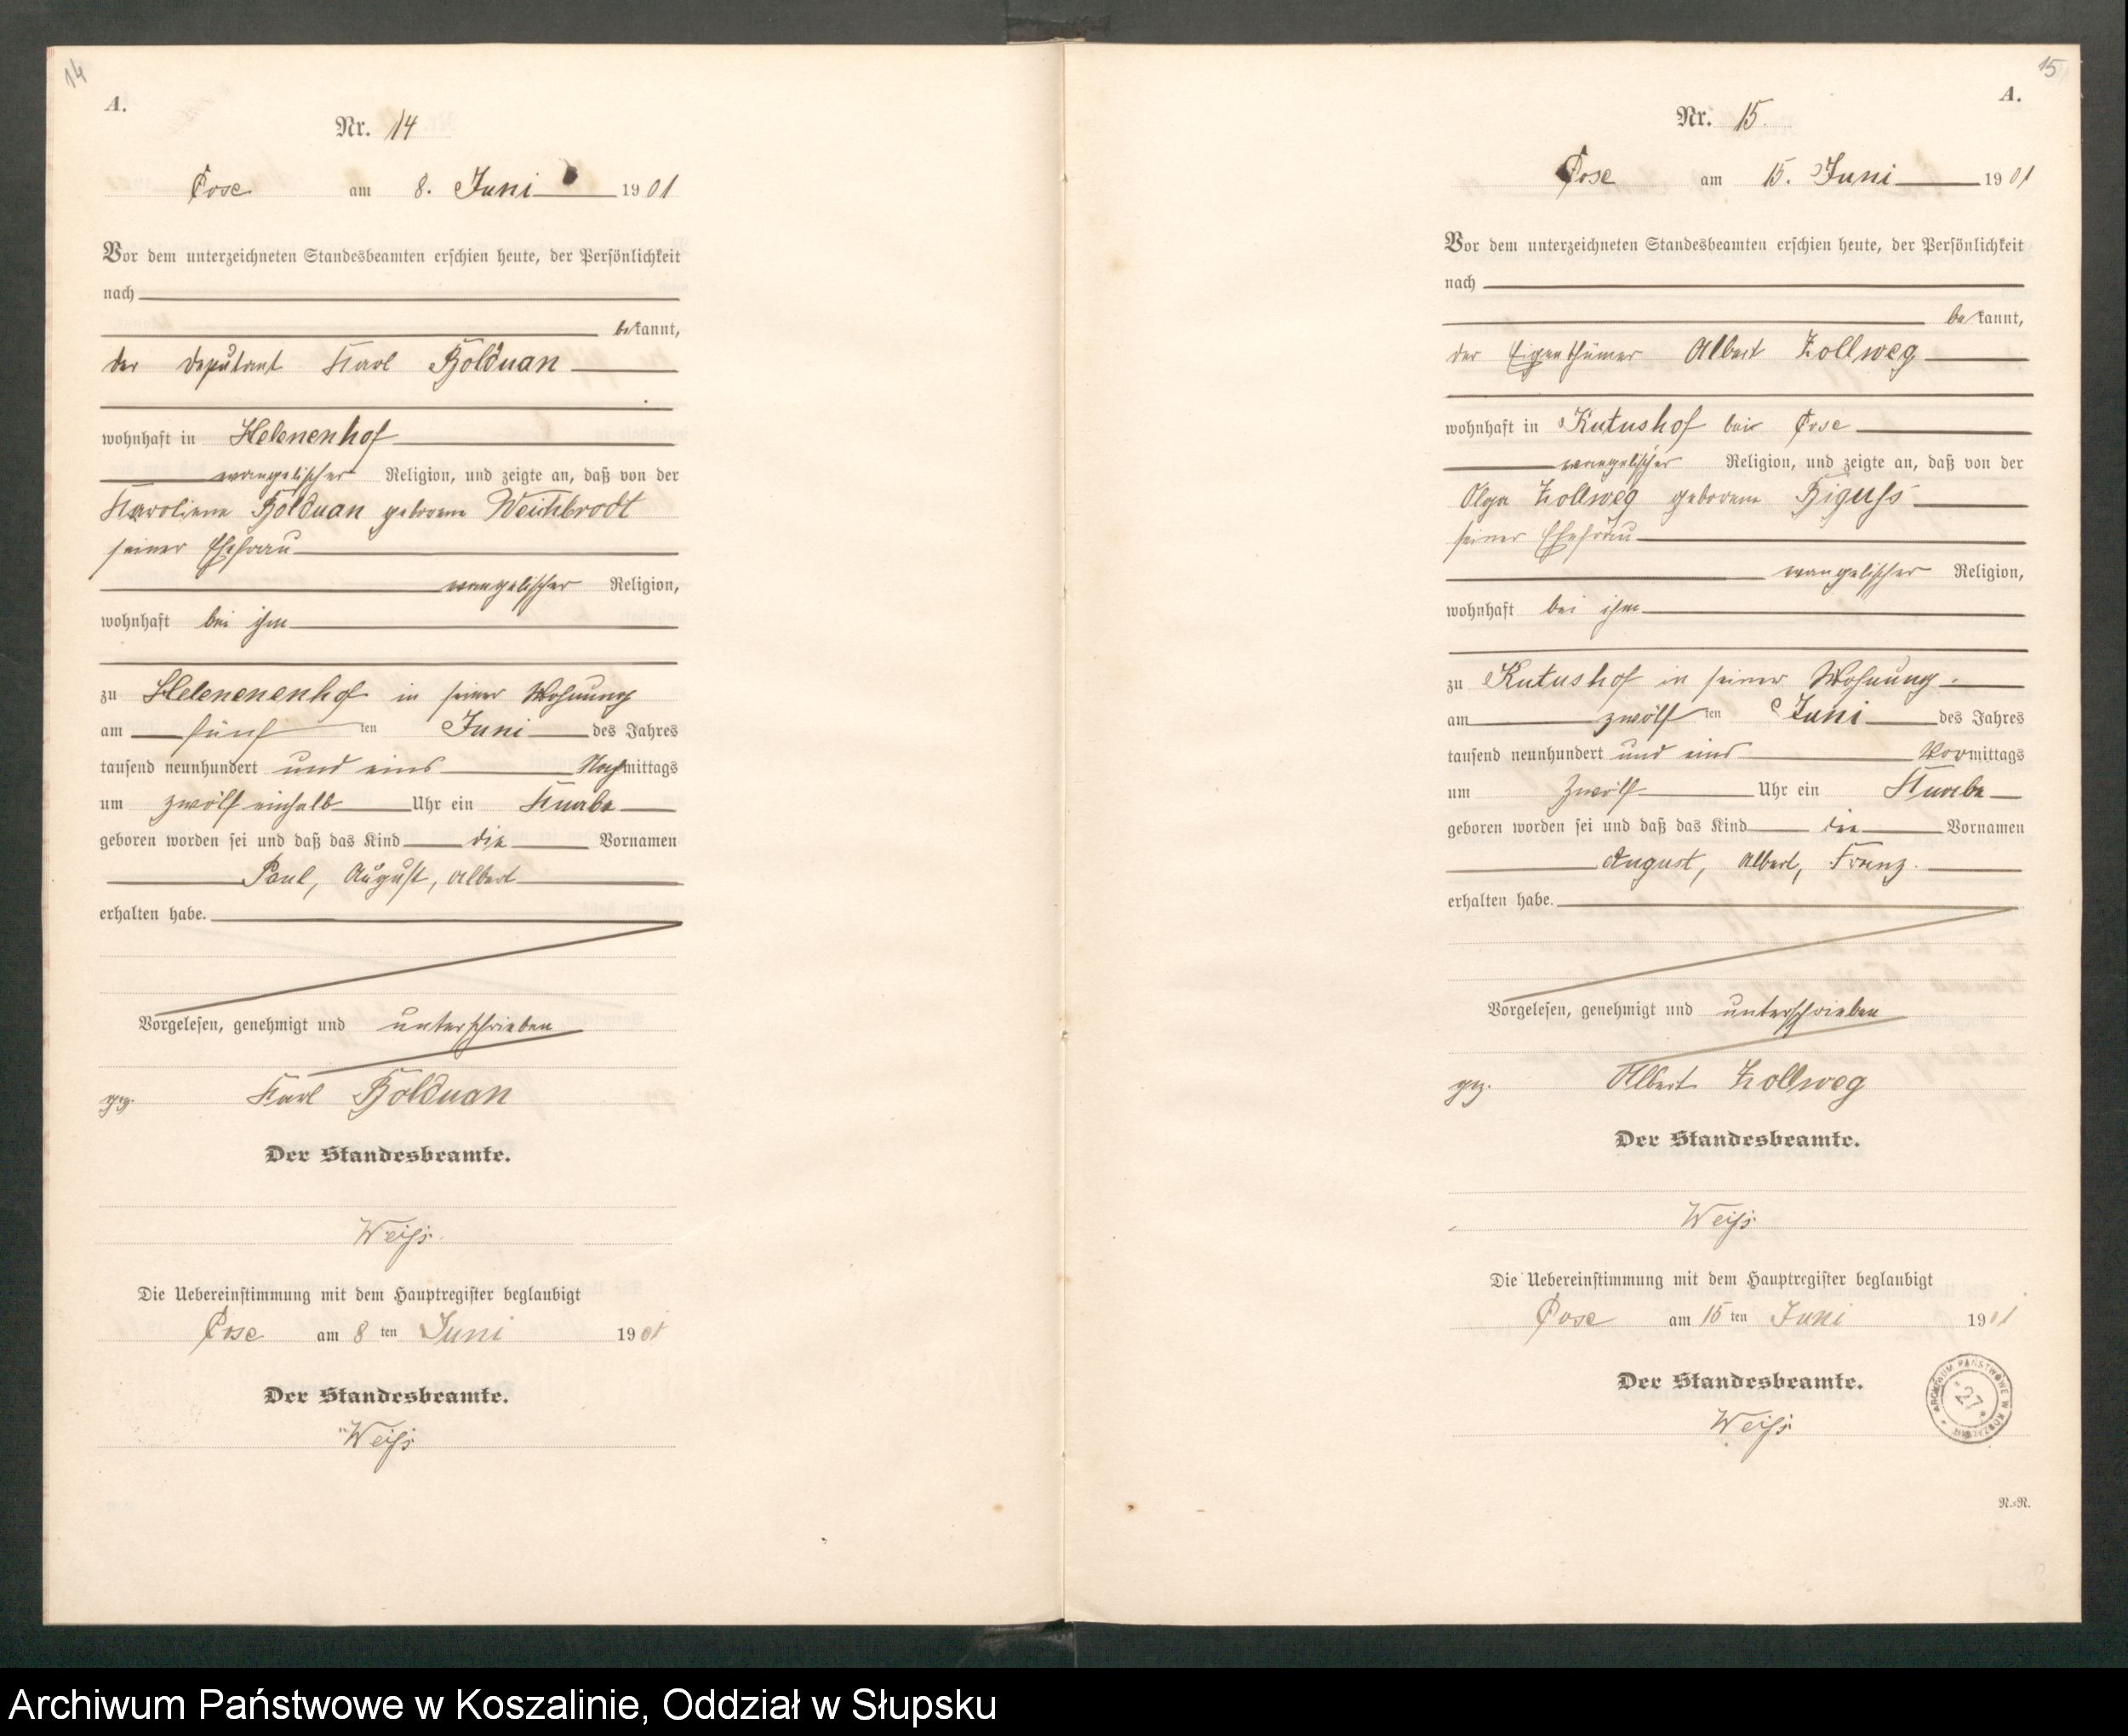 14
A.
Nr. 14
Cose am 8. Juni 1901
Vor dem unterzeichneten Standesbeamten erschien heute, der Persönlichkeit
nach
bekannt,
der Deputant Karl Bolduan
wohnhaft in Helenenhof
evangelischer Religion, und zeigte an, daß von der
Karoliene Bolduan geborene Weichbrodt
seiner Ehefrau
evangelischer Religion,
wohnhaft bei ihm
zu Helenenenhof in seiner Wohnung
am fünf ten Juni des Jahres
tausend neunhundert und eins Nachmittags
um zwölf einhalb Uhr ein Knabe
geboren worden sei und daß das Kind die Vornamen
Paul, August, Albert
erhalten habe.
Vorgelesen, genehmigt und unterschrieben
gez. Karl Bolduan
Der Standesbeamte.
Weiß
Die Uebereinstimmung mit dem Hauptregister beglaubigt
Cose am 8 ten Juni 1901
Der Standesbeamte.
Weiß
15
A.
Nr. 15.
Cose am 15. Juni 1901
Vor dem unterzeichneten Standesbeamten erschien heute, der Persönlichkeit
nach
bekannt,
der Eigenthümer Albert Zollweg
wohnhaft in Kutushof bei Cose
evangelischer Religion, und zeigte an, daß von der
Olga Zollweg geborene Biguss
seiner Ehefrau
evangelischer Religion,
wohnhaft bei ihm
zu Kutushof in seiner Wohnung.
am zwölf ten Juni des Jahres
tausend neunhundert und eins Vormittags
um Zwölf Uhr ein Knabe
geboren worden sei und daß das Kind die Vornamen
August, Albert, Franz.
erhalten habe.
Vorgelesen, genehmigt und unterschrieben
gez. Albert Zollweg
Der Standesbeamte.
Weiß
Die Uebereinstimmung mit dem Hauptregister beglaubigt
Cose am 15 ten Juni 1901
Der Standesbeamte.
Weiß
ARCHIWUM PAŃSTWOWE W KOSZALINIE
27
N.=N.
Archiwum Państwowe w Koszalinie, Oddział w Słupsku